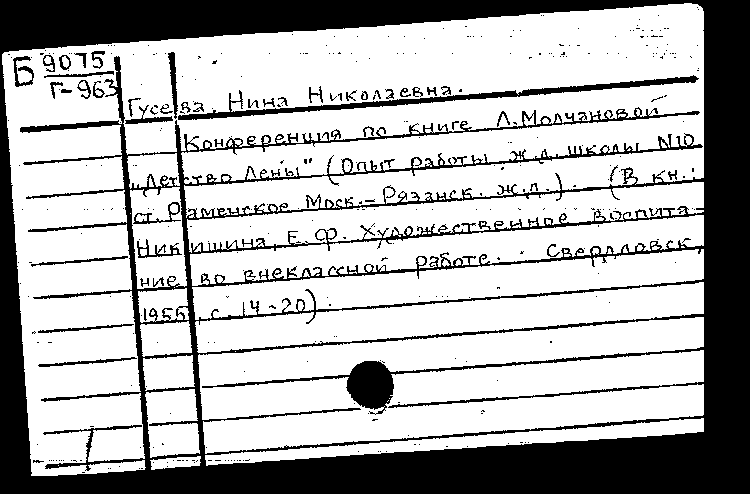 Б 9075
Г-963
Гусева, Нина Николаевна.
Конференция по книге Л. Молчановой
„Детство Лены" (Опыт работы ж.д. школы N10
ст. Раменское Моск.-Рязанск. ж.д.). (В кн.:
Никишина, Е.Ф. Художественное воспита-
ние во внеклассной работе. Свердловск,
1955, с. 14-20).